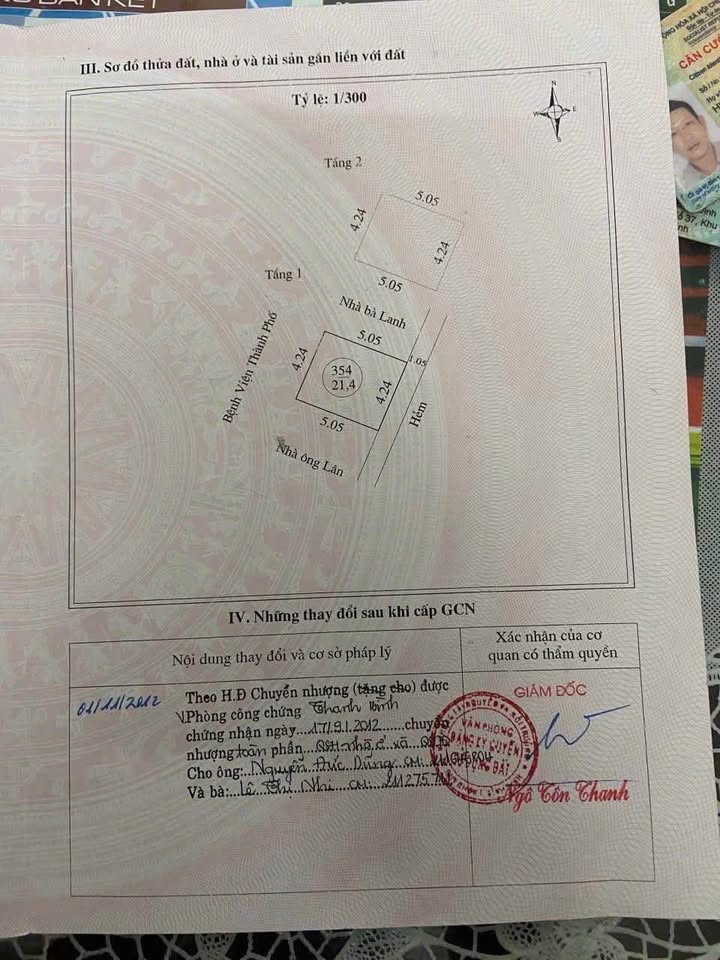 III. Sơ đồ thửa đất, nhà ở và tài sản gắn liền với đất
Tỷ lệ: 1/300
N
W
E
S
Tầng 2
5.05
4.24
4.24
5.05
Tầng 1
Nhà bà Lanh
5.05
1.05
4.24
354
21,4
4.24
5.05
Bệnh Viện Thành Phố
Hẻm
Nhà ông Lân
IV. Những thay đổi sau khi cấp GCN
Nội dung thay đổi và cơ sở pháp lý
Xác nhận của cơ quan có thẩm quyền
01/11/2012
Theo H.Đ Chuyển nhượng (tặng cho) được
Phòng công chứng Thanh Bình
chứng nhận ngày 17/9/2012 chuyển
nhượng toàn phần
Cho ông: Nguyễn Đức Dũng
Và bà: Lê Thị Nhi
GIÁM ĐỐC
VĂN PHÒNG
ĐĂNG KÝ QUYỀN
Ngô Tôn Thanh
CĂN CƯỚ